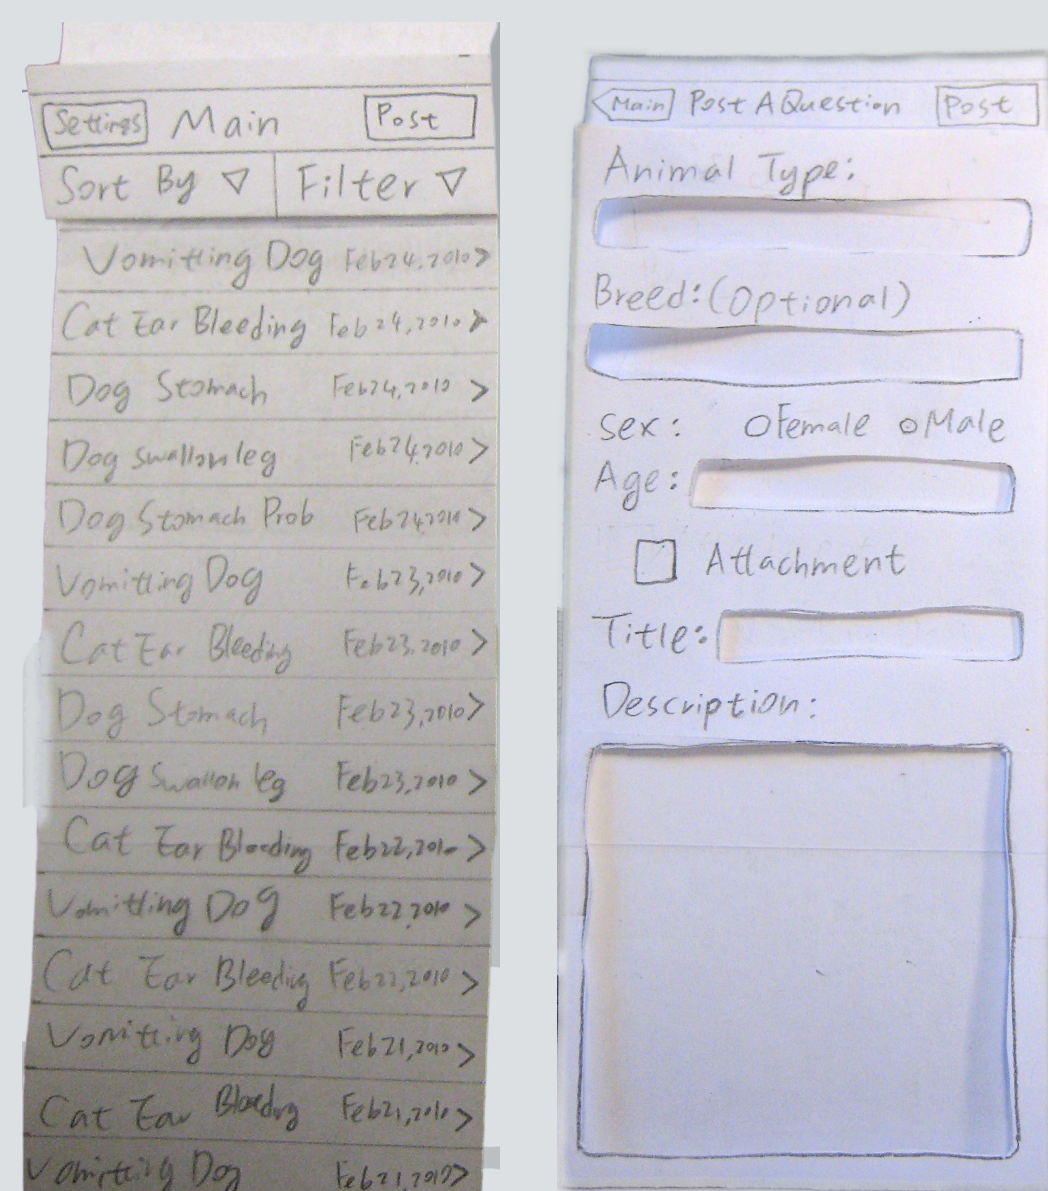 Settings Main Post
Sort By Filter
Vomitting Dog Feb 24, 2010 >
Cat Ear Bleeding Feb 24, 2010 >
Dog Stomach Feb 24, 2010 >
Dog swallow leg Feb 24, 2010 >
Dog Stomach Prob Feb 24, 2010 >
Vomitting Dog Feb 23, 2010 >
Cat Ear Bleeding Feb 23, 2010 >
Dog Stomach Feb 23, 2010 >
Dog Swallow leg Feb 23, 2010 >
Cat Ear Bleeding Feb 22, 2010 >
Vomitting Dog Feb 22, 2010 >
Cat Ear Bleeding Feb 22, 2010 >
Vomitting Dog Feb 21, 2010 >
Cat Ear Bleeding Feb 21, 2010 >
Vomitting Dog Feb 21, 2010 >
Main Post A Question Post
Animal Type:
Breed: (Optional)
Sex: Female Male
Age:
Attachment
Title:
Description: